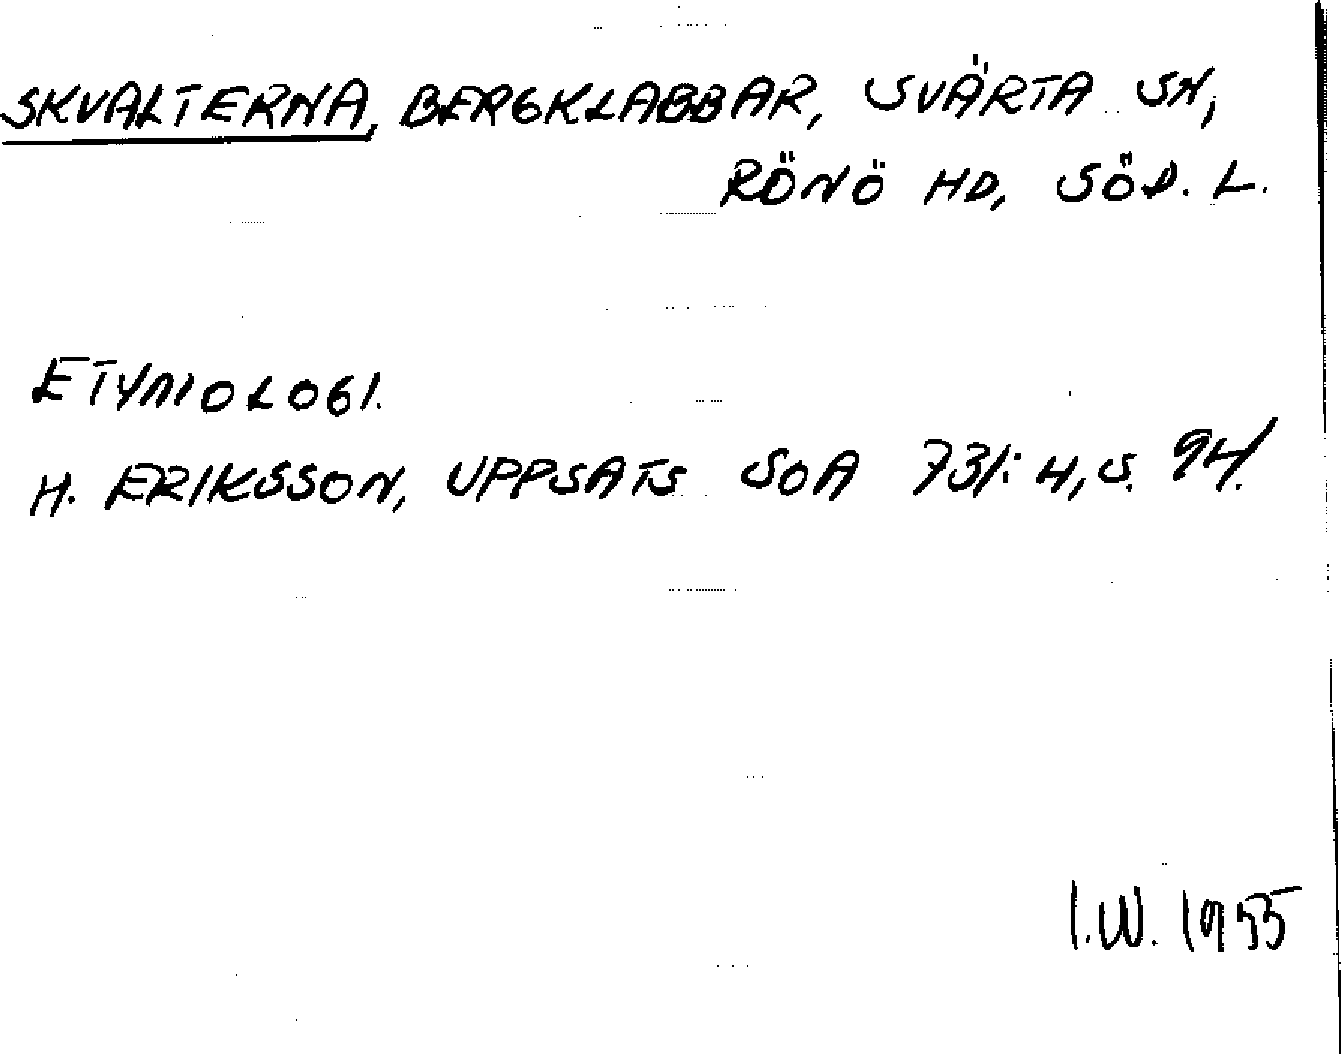 SKVALTERNA, BERGKLABBAR, SVÄRTA SN,
RÖNÖ HD, SÖD. L.
ETYMOLOGI.
H. ERIKSSON, UPPSATS SOA 73/: 4, S. 94.
I.W. 1955